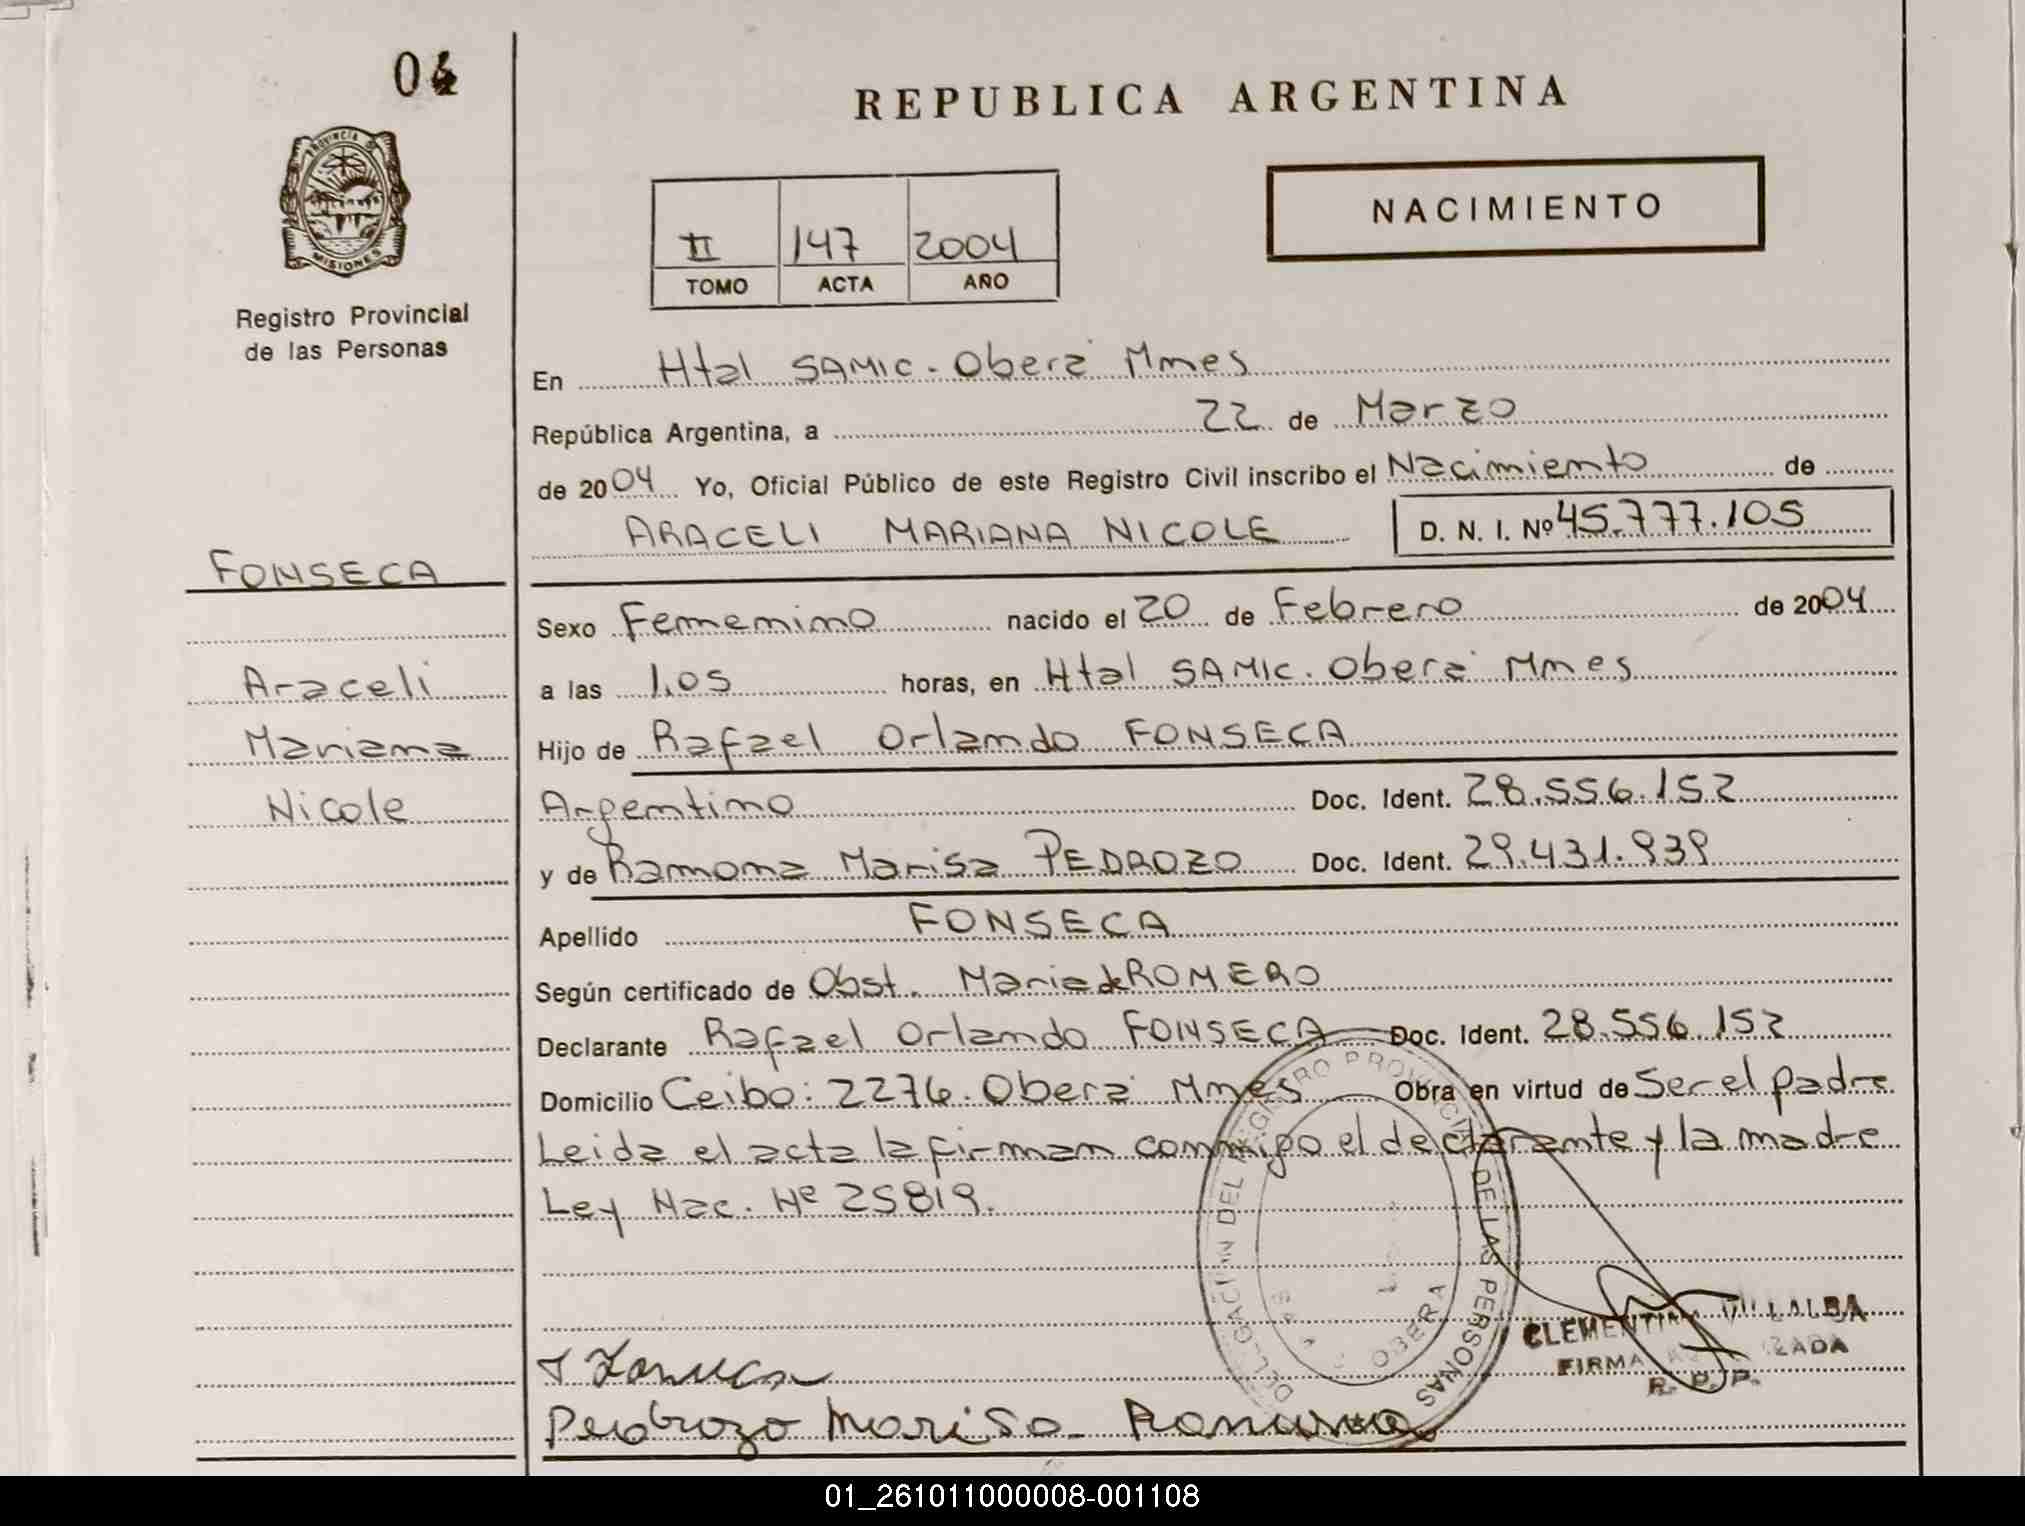 04
PROVINCIA DE
MISIONES
Registro Provincial
de las Personas
REPUBLICA ARGENTINA
NACIMIENTO
II 147 2004
TOMO ACTA AÑO
En Htal SAMIC. Oberá Mnes
República Argentina, a 22 de Marzo
de 2004 Yo, Oficial Público de este Registro Civil inscribo el Nacimiento de
ARACELI MARIANA NICOLE D. N. I. Nº 45.777.105
FONSECA
Araceli
Mariana
Nicole
Sexo Femenino nacido el 20 de Febrero de 2004
a las 1.05 horas, en Htal SAMIC. Oberá Mnes
Hijo de Rafael Orlando FONSECA
Argentino Doc. Ident. 28.556.152
y de Ramona Marisa PEDROZO Doc. Ident. 29.431.939
Apellido FONSECA
Según certificado de Obst. Maria de ROMERO
Declarante Rafael Orlando FONSECA Doc. Ident. 28.556.152
Domicilio Ceibo: 2276. Oberá Mnes Obra en virtud de Ser el padre
Leida el acta la firman conmigo el declarante y la madre
Ley Nac. Nº 25819.
DELEGACION DEL REGISTRO PROVINCIAL DE LAS PERSONAS
OBERA
CLEMENTINA VILLALBA
FIRMA AUTORIZADA
R. P. P.
Pedrozo Marisa Ramona
01_261011000008-001108